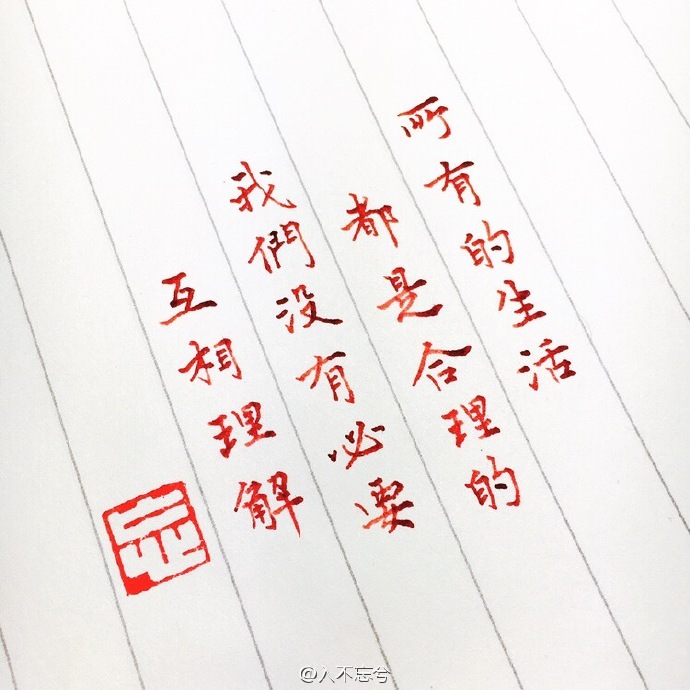 所有的生活
都是合理的
我們没有必要
互相理解
@人不忘兮